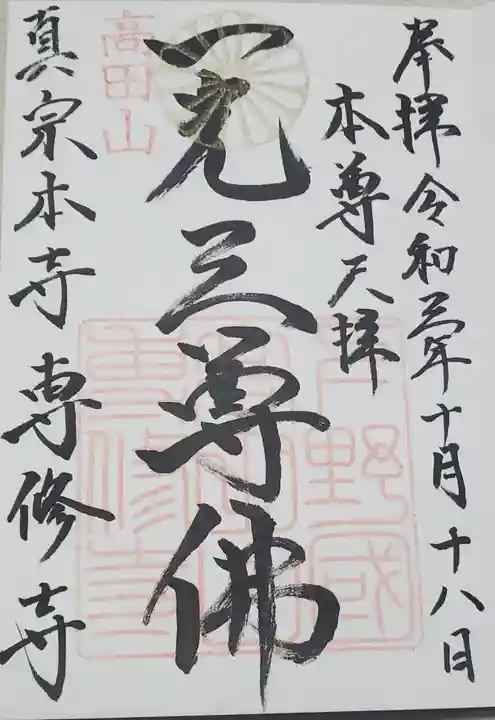 奉拝令和三年十月十八日
本尊天拝
一光三尊佛
高田山
真宗本寺専修寺
下野國
高田山
専修寺